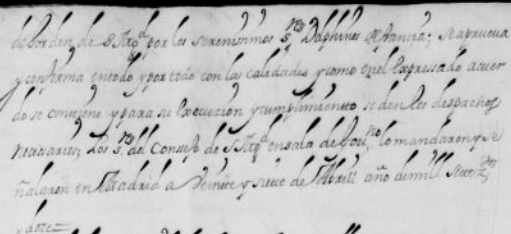 de horden de S. Mag.d por los serenissimos S.res Dalphines de francia; se aprueva
y confirma en todo y por todo con las calidades y como en el expressado acuer
do se contiene y para su execuzion y cumplimiento se den los despachos
necesarios; Los S.res del Consejo de S. Mag.d en sala de Gov.no lo mandaron y se
ñalaron en Madrid a Veinte y siete de Abrill año de mill setez.tos